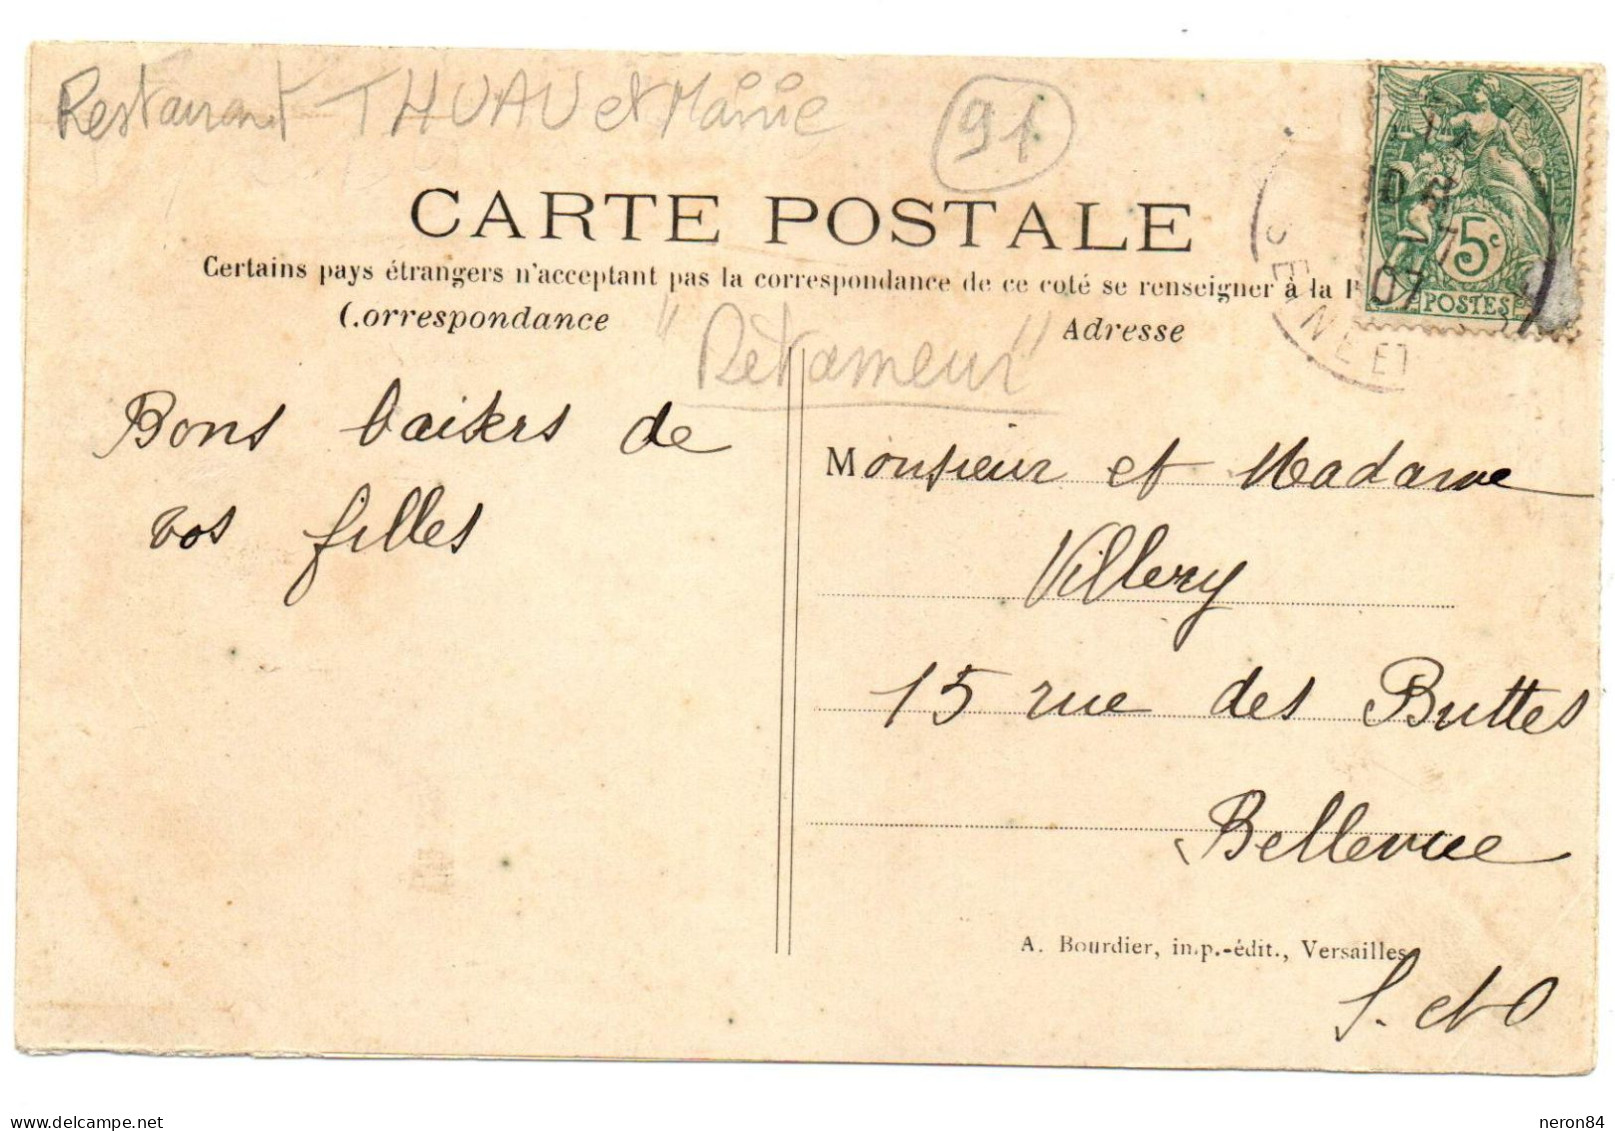 Restaurant THUAU et Mairie
91
CARTE POSTALE
Certains pays étrangers n'acceptant pas la correspondance de ce coté se renseigner à la
Correspondance
Adresse
"Retameur"
5c
POSTES
07
SEINE ET
Bons baisers de
vos filles
Monsieur et Madame
Villery
15 rue des Buttes
Bellevue
A. Bourdier, imp.-édit., Versailles
S. et O
www.delcampe.net
neron84